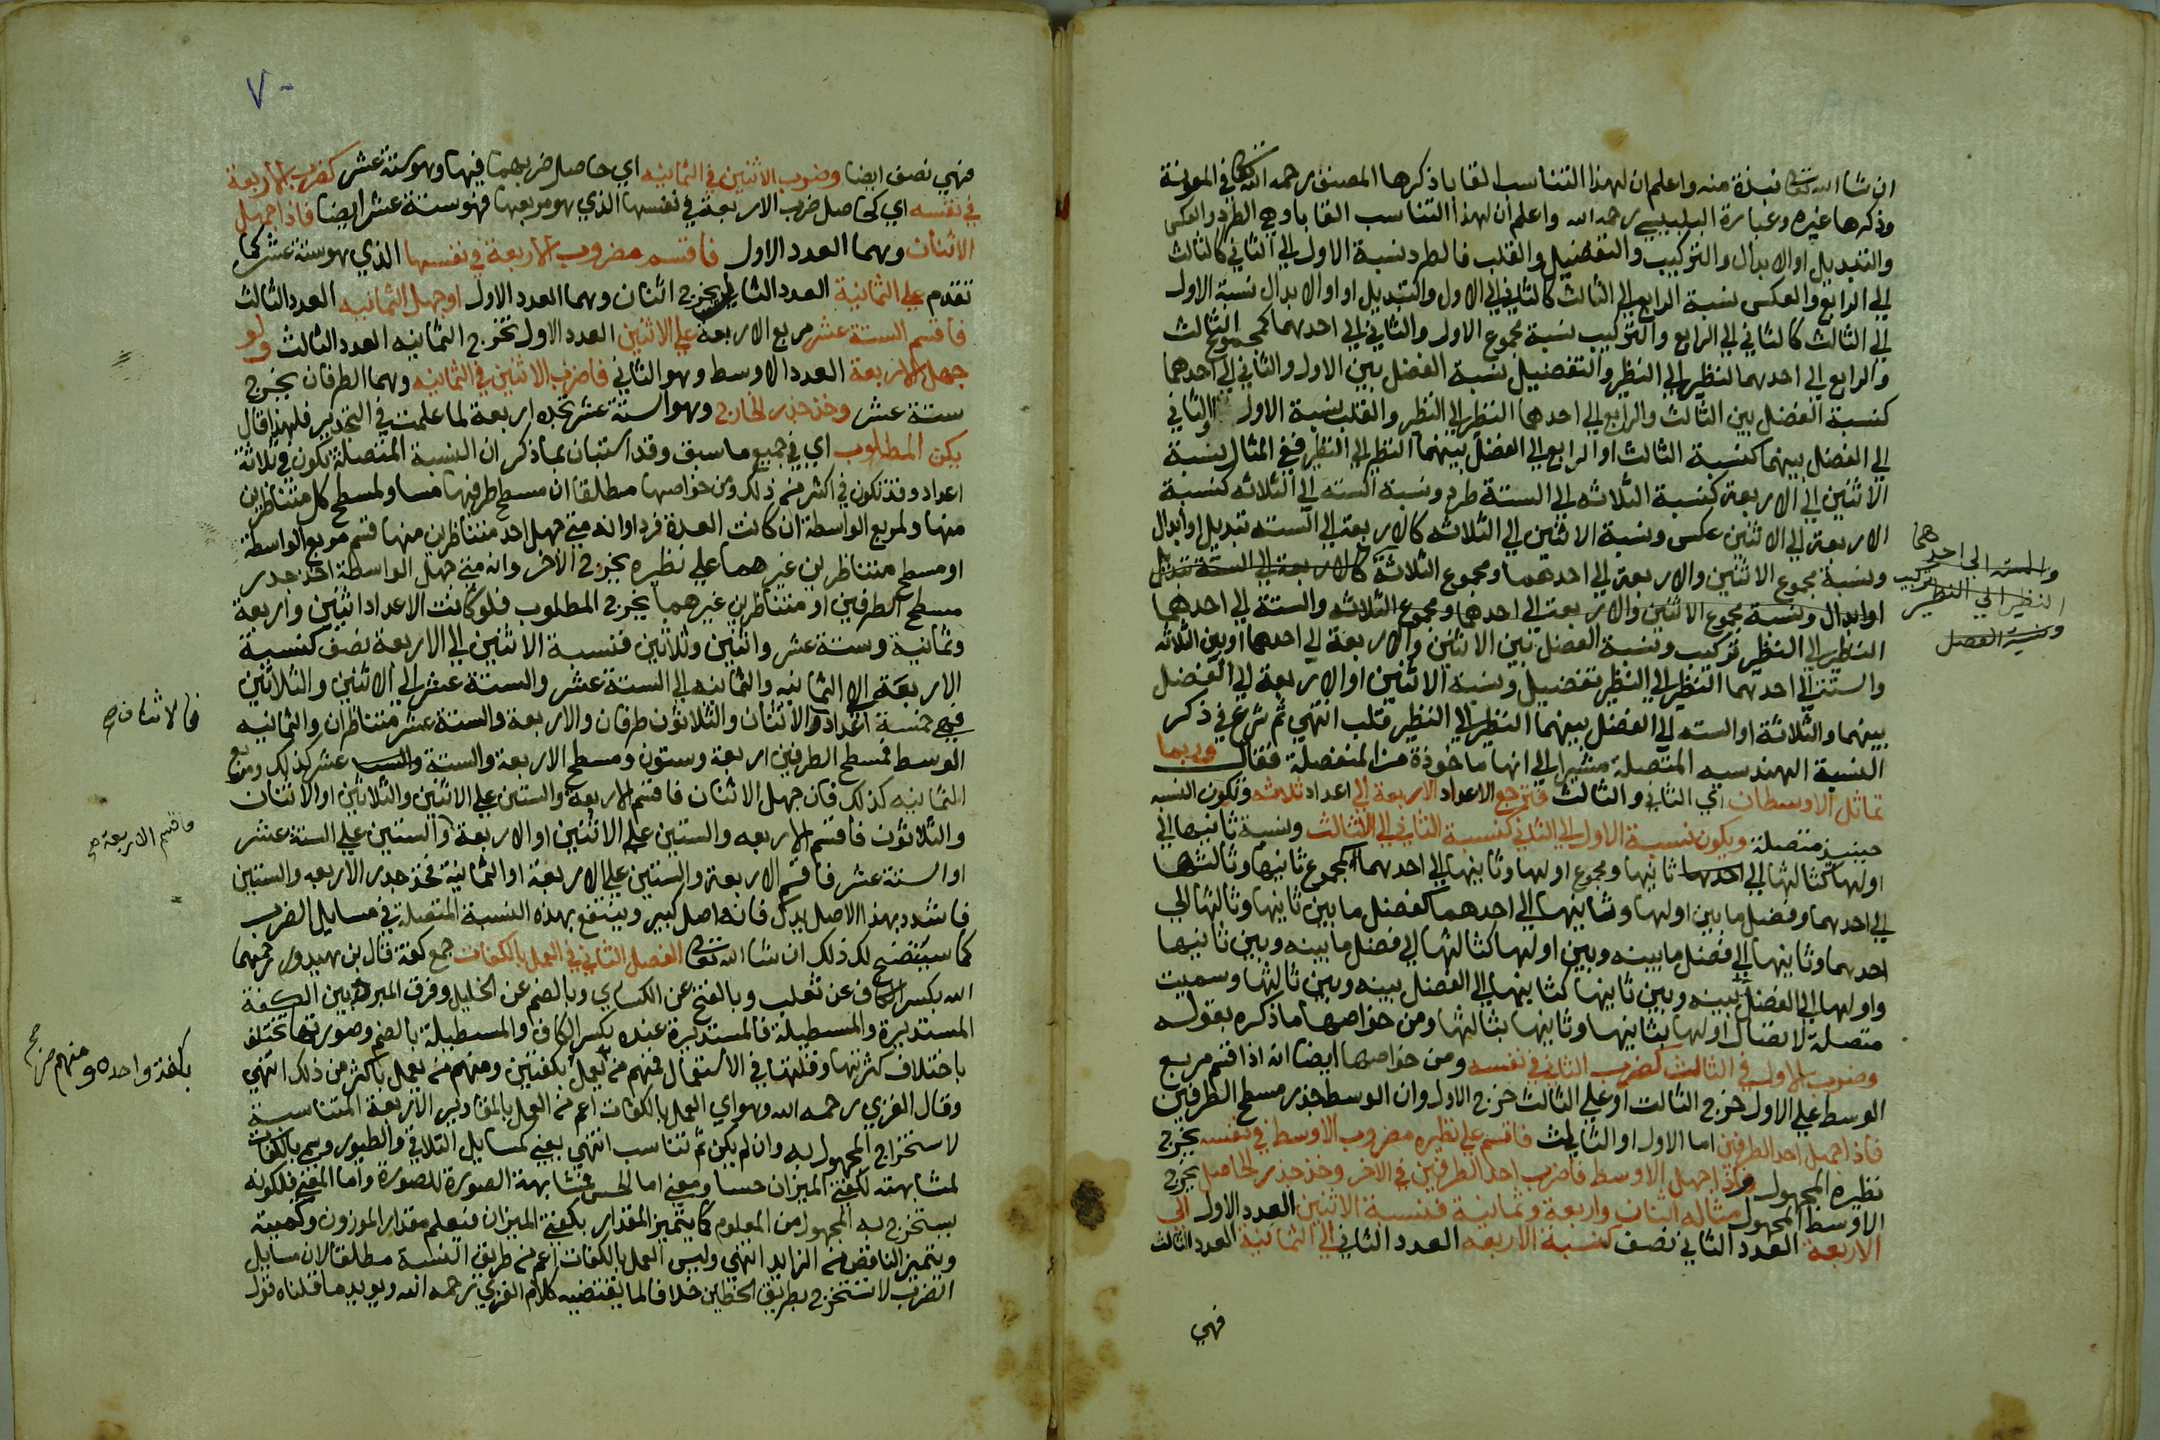 ان شا الله تعالى نبذة منه واعلم ان لهذا التناسب القابا ذكرها المصنف رحمه الله تعالى في المعونة
وذكرها غيره وعبارة البلبيسي رحمه الله واعلم ان لهذا التناسب القابا وهي الطرد والعكس
والتبديل او الابدال والتركيب والتفضيل والقلب فالطرد نسبة الاول الي الثاني كالثالث
الي الرابع والعكس نسبة الرابع الي الثالث كالثاني الي الاول والتبديل او الابدال نسبة الاول
الي الثالث كالثاني الي الرابع والتركيب نسبة مجموع الاول والثاني الي احدهما كمجموع الثالث
والرابع الي احدهما النظير الي النظير والتفضيل نسبة الفضل بين الاول والثاني الي احدهما
كنسبة الفضل بين الثالث والرابع الي احدهما النظير الي النظير والقلب نسبة الاول والثاني
الي الفضل بينهما كنسبة الثالث او الرابع الي الفضل بينهما النظير الي النظير ففي المثال نسبة
الاثنين الي الاربعة كنسبة الثلاثه الي الستة طرد ونسبة الستة الي الثلاثه كنسبة
الاربعة الي الاثنين عكس ونسبة الاثنين الي الثلاثه كالاربعة الي الستة تبديل او ابدال
ونسبة مجموع الاثنين والاربعة الي احدهما ومجموع الثلاثة كالاربعة الي الستة تبديل
او ابدال ونسبة مجموع الاثنين والاربعة الي احدها ومجموع الثلاثه والستة الي احدهما
النظير الي النظير تركيب ونسبة الفضل بين الاثنين والاربعة الي احدهما او بين الثلاثه
والستة الي احدهما النظير الي النظير تفضيل ونسبة الاثنين او الاربعة الي الفضل
بينهما والثلاثة او الستة الي الفضل بينهما النظير الي النظير قلب انتهي ثم شرع في ذكر
النسبة الهندسيه المتصلة مشيرا الي انها ماخوذة من المنفصلة فقال وربما
تماثل الاوسطان اي الثاني والثالث فترجع الاعداد الاربعة الي اعداد ثلاثه وتكون النسبه
حينيذ متصلة ويكون نسبة الاول الي الثاني كنسبة الثاني الي الثالث ونسبة ثانيها الي
اولها كثالثها الي احدها ثانيها ومجموع اولها وثانيها الي احدهما كمجموع ثانيها وثالثها
الي احدهما وفضل ما بين اولها وثانيها الي احدهما كفضل ما بين ثانيها وثالثها الي
احدهما وثانيها الي فضل ما بينه وبين اولها كثالثها الي فضل ما بينه وبين ثانيها
واولها الي الفضل بينه وبين ثانيها كثانيها الي الفضل بينه وبين ثالثها وسميت
متصلة لاتصال اولها بثانيها وثانيها بثالثها ومن خواصها ما ذكره بقوله
وضرب الاول في الثالث كضرب الثاني في نفسه ومن خواصها ايضا انه اذا قسم مربع
الوسط علي الاول خرج الثالث او علي الثالث خرج الاول وان الوسط جذر مسطح الطرفين
فاذا جهل احد الطرفين اما الاول او الثالث فاقسم علي نظيره مضروب الاوسط في نفسه يخرج
نظيره المجهول واذا جهل الاوسط فاضرب احد الطرفين في الاخر وخذ جذر الحاصل يخرج
الاوسط المجهول مثاله اثنان واربعة وثمانية فنسبة الاثنين العدد الاول الي
الاربعة العدد الثاني نصف كنسبة الاربعه العدد الثاني الي الثمانية العدد الثالث
فهي
والسته الي احدهما
النظير الي النظير تركيب
ونسبة الفضل
٧٠
فهي نصف ايضا وضرب الاثنين في الثمانيه اي حاصل ضربهما فيها وهو ستة عشر كضرب الاربعة
في نفسه اي كحاصل ضرب الاربعة في نفسها الذي هو مربعها فهو ستة عشر ايضا فاذا جهل
الاثنان وهما العدد الاول فاقسم مضروب الاربعة في نفسها الذي هو ستة عشر كما
تقدم علي الثمانية العدد الثالث يخرج اثنان وهما العدد الاول او جهل الثمانيه العدد الثالث
فاقسم الستة عشر مربع الاربعة علي الاثنين العدد الاول تخرج الثمانيه العدد الثالث ولو
جهل الاربعة العدد الاوسط وهو الثاني فاضرب الاثنين في الثمانيه وهما الطرفان يخرج
ستة عشر وخذ جذر الخارج وهو الستة عشر تجده اربعة لما علمت في التجذير فلهذا قال
يكن المطلوب اي في جميع ما سبق وقد استبان بما ذكر ان النسبة المتصلة يكون في ثلاثة
اعداد وقد تكون في اكثر من ذلك ومن خواصها مطلقا ان مسطح طرفيها مساو لمسطح كل متناظرين
منها ولمربع الواسطة ان كانت العدة فردا وانه متي جهل احد متناظرين منها قسم مربع الواسطة
او مسطح متناظرين غيرهما علي نظيره يخرج الاخر وانه متي جهل الواسطة اخذ جذر
مسطح الطرفين او متناظرين غيرهما يخرج المطلوب فلو كانت الاعداد اثنين واربعة
وثمانية وستة عشر واثنين وثلاثين فنسبة الاثنين الي الاربعة نصف كنسبة
الاربعة الي الثمانيه والثمانيه الي الستة عشر والستة عشر الي الاثنين والثلاثين
فهي خمسة اعداد والاثنان والثلاثون طرفان والاربعة والستة عشر متناظران والثمانيه
الوسط فمسطح الطرفين اربعة وستون ومسطح الاربعة والستة عشر كذلك ومربع
الثمانيه كذلك فان جهل الاثنان فاقسم الاربعة والستين علي الاثنين والثلاثين او الاثنان
والثلاثون فاقسم الاربعه والستين علي الاثنين او الاربعة والستين علي الستة عشر
او الستة عشر فاقسم الاربعة والستين علي الاربعة او الثمانية فخذ جذر الاربعه والستين
فاشدد بهذا الاصل يدك فانه اصل كبير وينتفع بهذه النسبة المتصلة في مسايل الضرب
كما سيتضح لك ذلك ان شا الله تعالى الفصل الثاني في العمل بالكفات جمع كفة قال بن هيدور رحمهما
الله بكسر الكاف عن ثعلب وبالفتح عن الكساي وبالضم عن الخليل وفرق المبرد بين الكفة
المستديرة والمستطيلة فالمستديرة عنده بكسر الكاف والمستطيلة بالضم وصورتها تختلف
باختلاف كثرتها وقلتها في الاستعمال فمنهم من يعمل بكفتين ومنهم من يعمل باكثر من ذلك انتهي
وقال الغزي رحمه الله وهو اي العمل بالكفات اعم من العمل بالمقادير الاربعة المتناسبة
لاستخراج المجهول به وان لم يكن ثم تناسب انتهي يعني كمسايل التلاقي والطيور وسمي بالكفات
لمشابهته لكفتي الميزان حسا ومعني اما الحس فمشابهة الصورة للصورة واما المعني فلكونه
يستخرج به المجهول من المعلوم كما يتميز المقدار بكفتي الميزان فيعلم مقدار الموزون وكميته
ويتميز الناقص من الزايد انتهي وليس العمل بالكفات اعم من طريق النسبة مطلقا لان مسايل
الضرب لا تستخرج بطريق الخطاين خلافا لما يقتضيه كلام الغزي رحمه الله ويويد ما قلناه قول
فالاثنان صح
فاقسم الاربعة صح
بكفة واحده ومنهم من